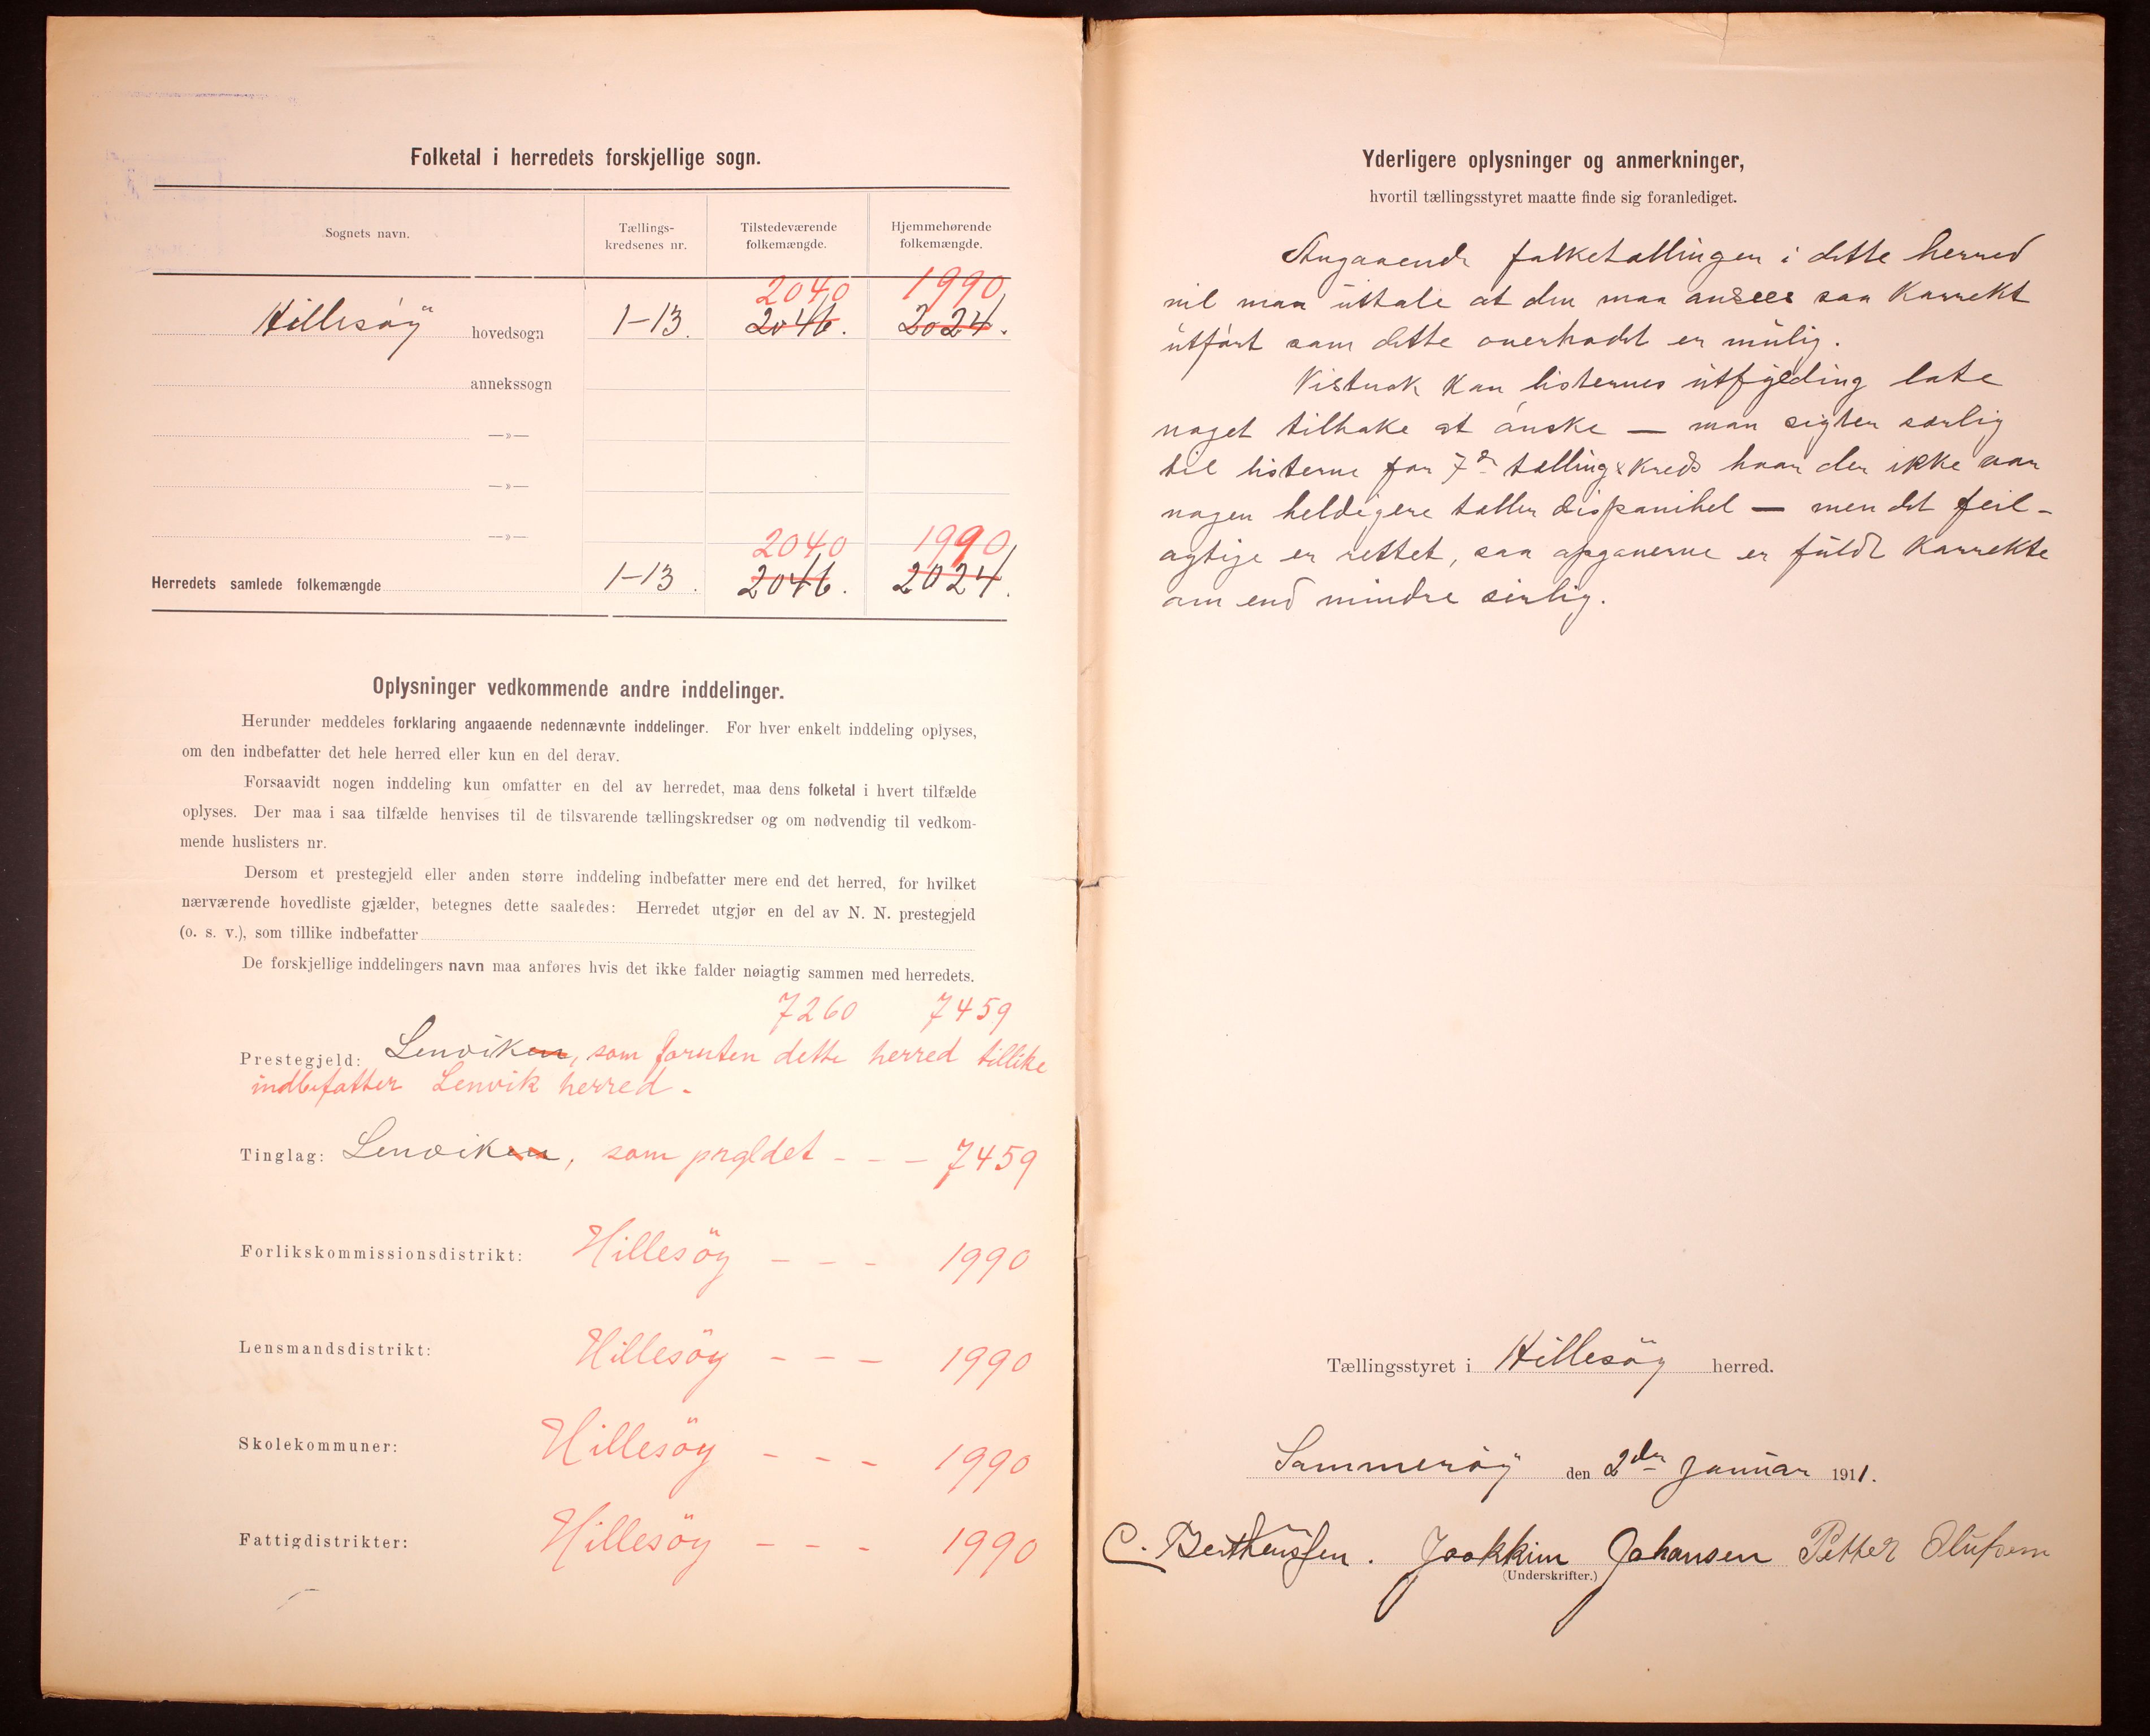 Folketal i herredets forskjellige sogn.
Sognets navn.
Tællings-
kredsenes nr.
Tilstedeværende
folkemængde.
Hjemmehørende
folkemængde.
2040 1990
Hillesöÿ hovedsogn 1-13. 2046. 2024.
annekssogn
—»—
—»—
—»—
2040 1990
Herredets samlede folkemængde 1-13. 2046. 2024.
Oplysninger vedkommende andre inddelinger.
Herunder meddeles forklaring angaaende nedennævnte inddelinger. For hver enkelt inddeling oplyses,
om den indbefatter det hele herred eller kun en del derav.
Forsaavidt nogen inddeling kun omfatter en del av herredet, maa dens folketal i hvert tilfælde
oplyses. Der maa i saa tilfælde henvises til de tilsvarende tællingskredser og om nødvendig til vedkom-
mende huslisters nr.
Dersom et prestegjeld eller anden større inddeling indbefatter mere end det herred, for hvilket
nærværende hovedliste gjælder, betegnes dette saaledes: Herredet utgjør en del av N. N. prestegjeld
(o. s. v.), som tillike indbefatter
De forskjellige inddelingers navn maa anføres hvis det ikke falder nøiagtig sammen med herredets.
7260 7459
Prestegjeld: Lenviken, som foruten dette herred tillike
indbefatter Lenvik herred -
Tinglag: Lenviken, som prgldet - - - 7459
Forlikskommissionsdistrikt: Hillesöy - - - 1990
Lensmandsdistrikt: Hillesöy - - - 1990
Skolekommuner: Hillesöy - - - 1990
Fattigdistrikter: Hillesöy - - - 1990
Yderligere oplysninger og anmerkninger,
hvortil tællingsstyret maatte finde sig foranlediget.
Angaaende folketællingen i dette herred
vil man üttale at den maa ansees saa korrekt
ütført som dette overhodet er mülig.
Vistnok kan listernes ütfylding late
noget tilbake at ønske — man sigter særlig
til listerne for 7de tællingskreds hvor der ikke var
nogen heldigere tæller disponibel — men det feil-
agtige er rettet, saa opgaverne er füldt korrekte
om end mindre sirlig.
Tællingsstyret i Hillesöy herred.
Sommeröÿ den 2den Janüar 1911.
C. Bertheüssen. Joakkim Johansen Petter Olüfsen
(Underskrifter.)